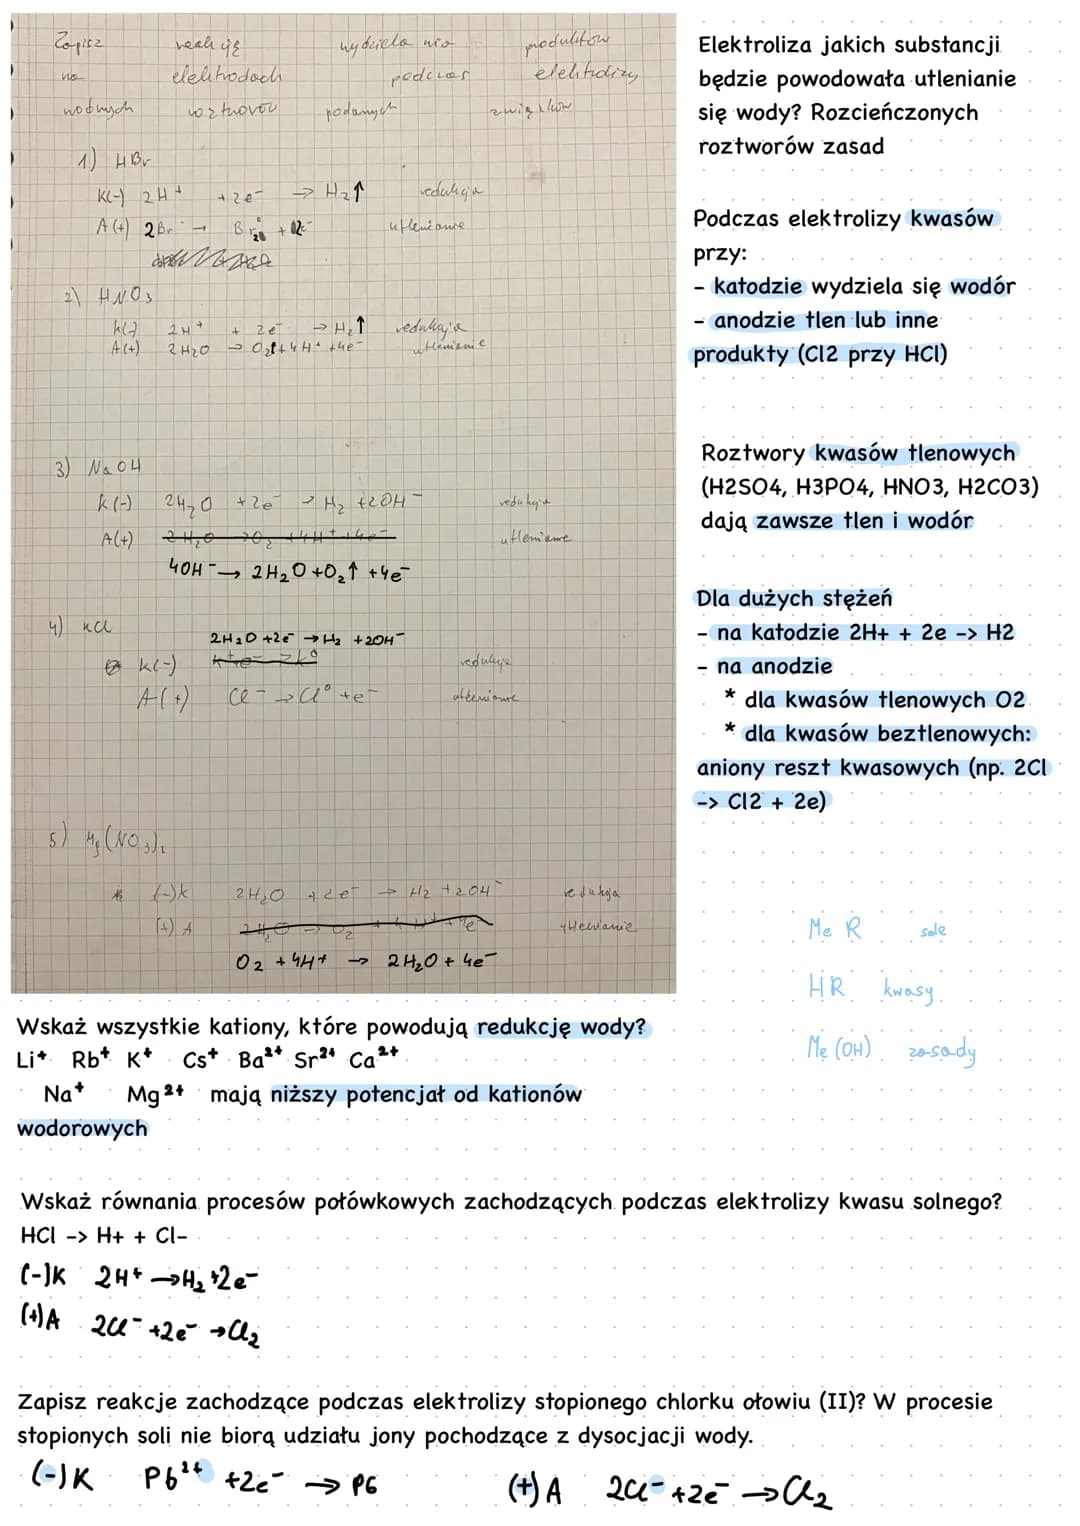 Zapisz reakcję wydziela nia produktów
na elektrodach podczas elektrolizy
wodnych roztworów podanych związków
1) HBr
K(-) 2H+ +2e- → H2↑ redukcja
A(+) 2Br- → Br2 + 2e- utlenianie
2) HNO3
K(-) 2H+ + 2e- → H2↑ redukcja
A(+) 2H2O → O2↑+4H+ +4e- utlenianie
3) NaOH
K(-) 2H2O +2e- → H2 +2OH- redukcja
A(+) 2H2O → O2 +4H+ +4e- utlenianie
4OH- → 2H2O +O2↑ +4e-
4) KCl
2H2O +2e- → H2 +2OH-
K(-) K+ e- → K0 redukcja
A(+) Cl- → Cl0 +e- utlenianie
5) Mg(NO3)2
(-)K 2H2O +2e- → H2 +2OH- redukcja
(+) A 2H2O → O2 + 4H+ +4e- utlenianie
O2 +4H+ → 2H2O + 4e-
Elektroliza jakich substancji
będzie powodowała utlenianie
się wody? Rozcieńczonych
roztworów zasad
Podczas elektrolizy kwasów
przy:
- katodzie wydziela się wodór
- anodzie tlen lub inne
produkty (Cl2 przy HCl)
Roztwory kwasów tlenowych
(H2SO4, H3PO4, HNO3, H2CO3)
dają zawsze tlen i wodór
Dla dużych stężeń
- na katodzie 2H+ + 2e -> H2
- na anodzie
* dla kwasów tlenowych O2
* dla kwasów beztlenowych:
aniony reszt kwasowych (np. 2Cl
-> Cl2 + 2e)
Me R sole
HR kwasy
Me (OH) zasady
Wskaż wszystkie kationy, które powodują redukcję wody?
Li+ Rb+ K+ Cs+ Ba2+ Sr2+ Ca2+
Na+ Mg2+ mają niższy potencjał od kationów
wodorowych
Wskaż równania procesów połówkowych zachodzących podczas elektrolizy kwasu solnego?
HCl -> H+ + Cl-
(-)K 2H+ → H2 +2e-
(+)A 2Cl- +2e- → Cl2
Zapisz reakcje zachodzące podczas elektrolizy stopionego chlorku ołowiu (II)? W procesie
stopionych soli nie biorą udziału jony pochodzące z dysocjacji wody.
(-)K Pb2+ +2e- → Pb (+)A 2Cl- +2e- → Cl2